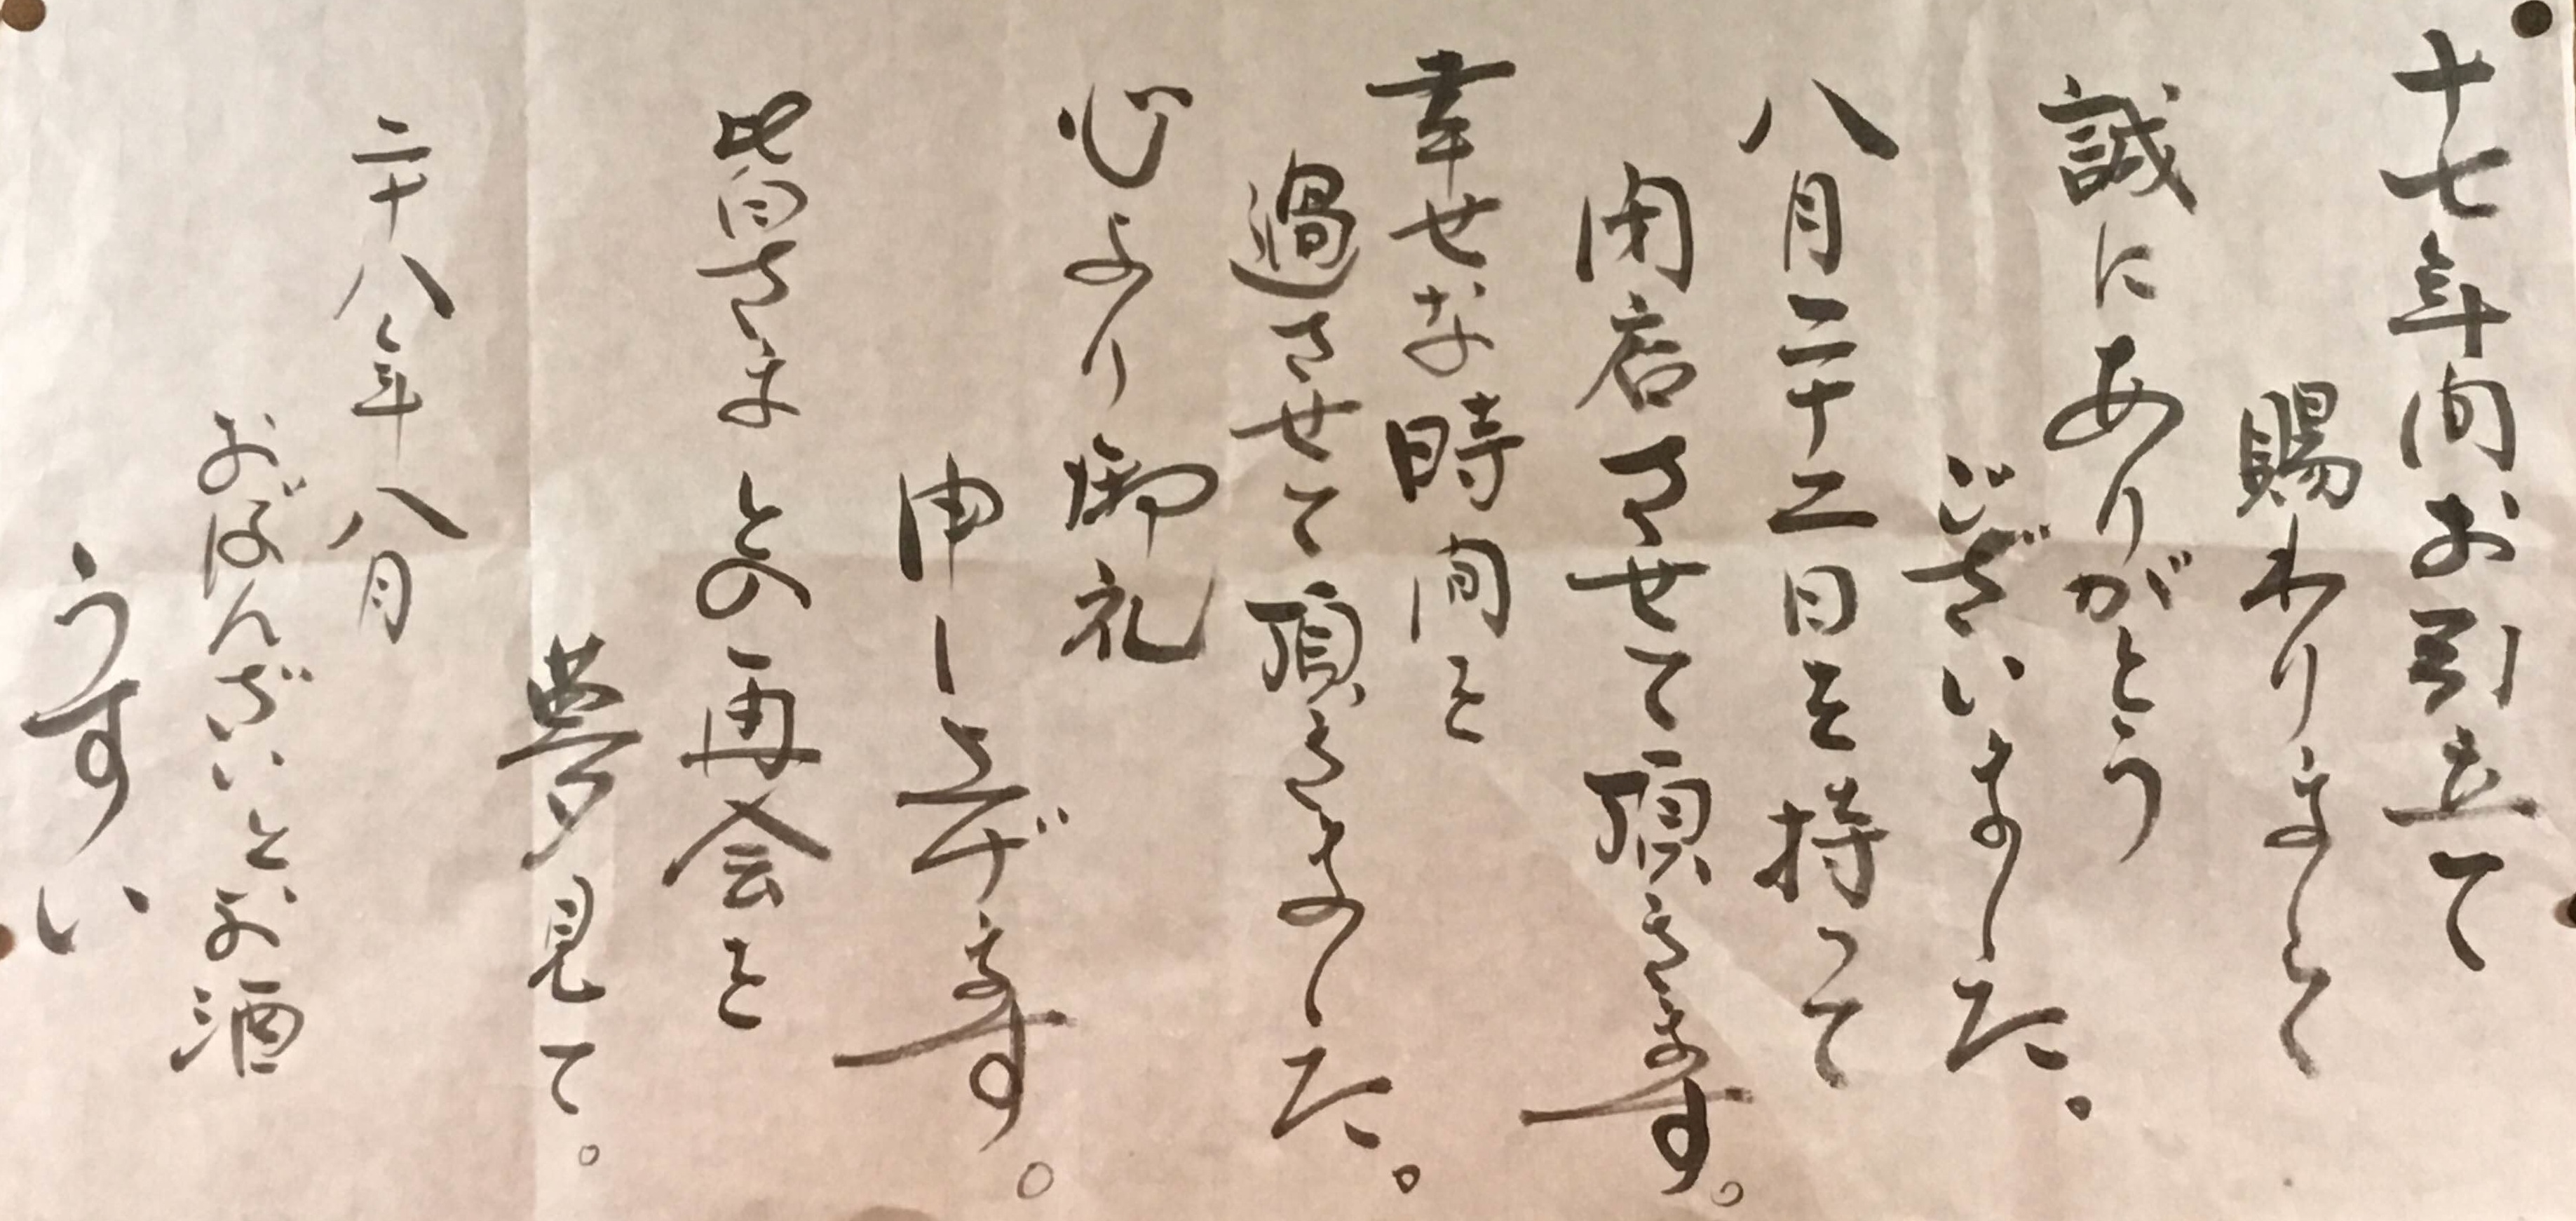 十七年間お引立て
賜わりまして
誠にありがとう
ございました。
八月二十二日を持って
閉店させて頂きます。
幸せな時間を
過させて頂きました。
心より御礼
申し上げます。
皆さまとの再会を
夢見て。
二十八年八月
おばんざいとお酒
うすい